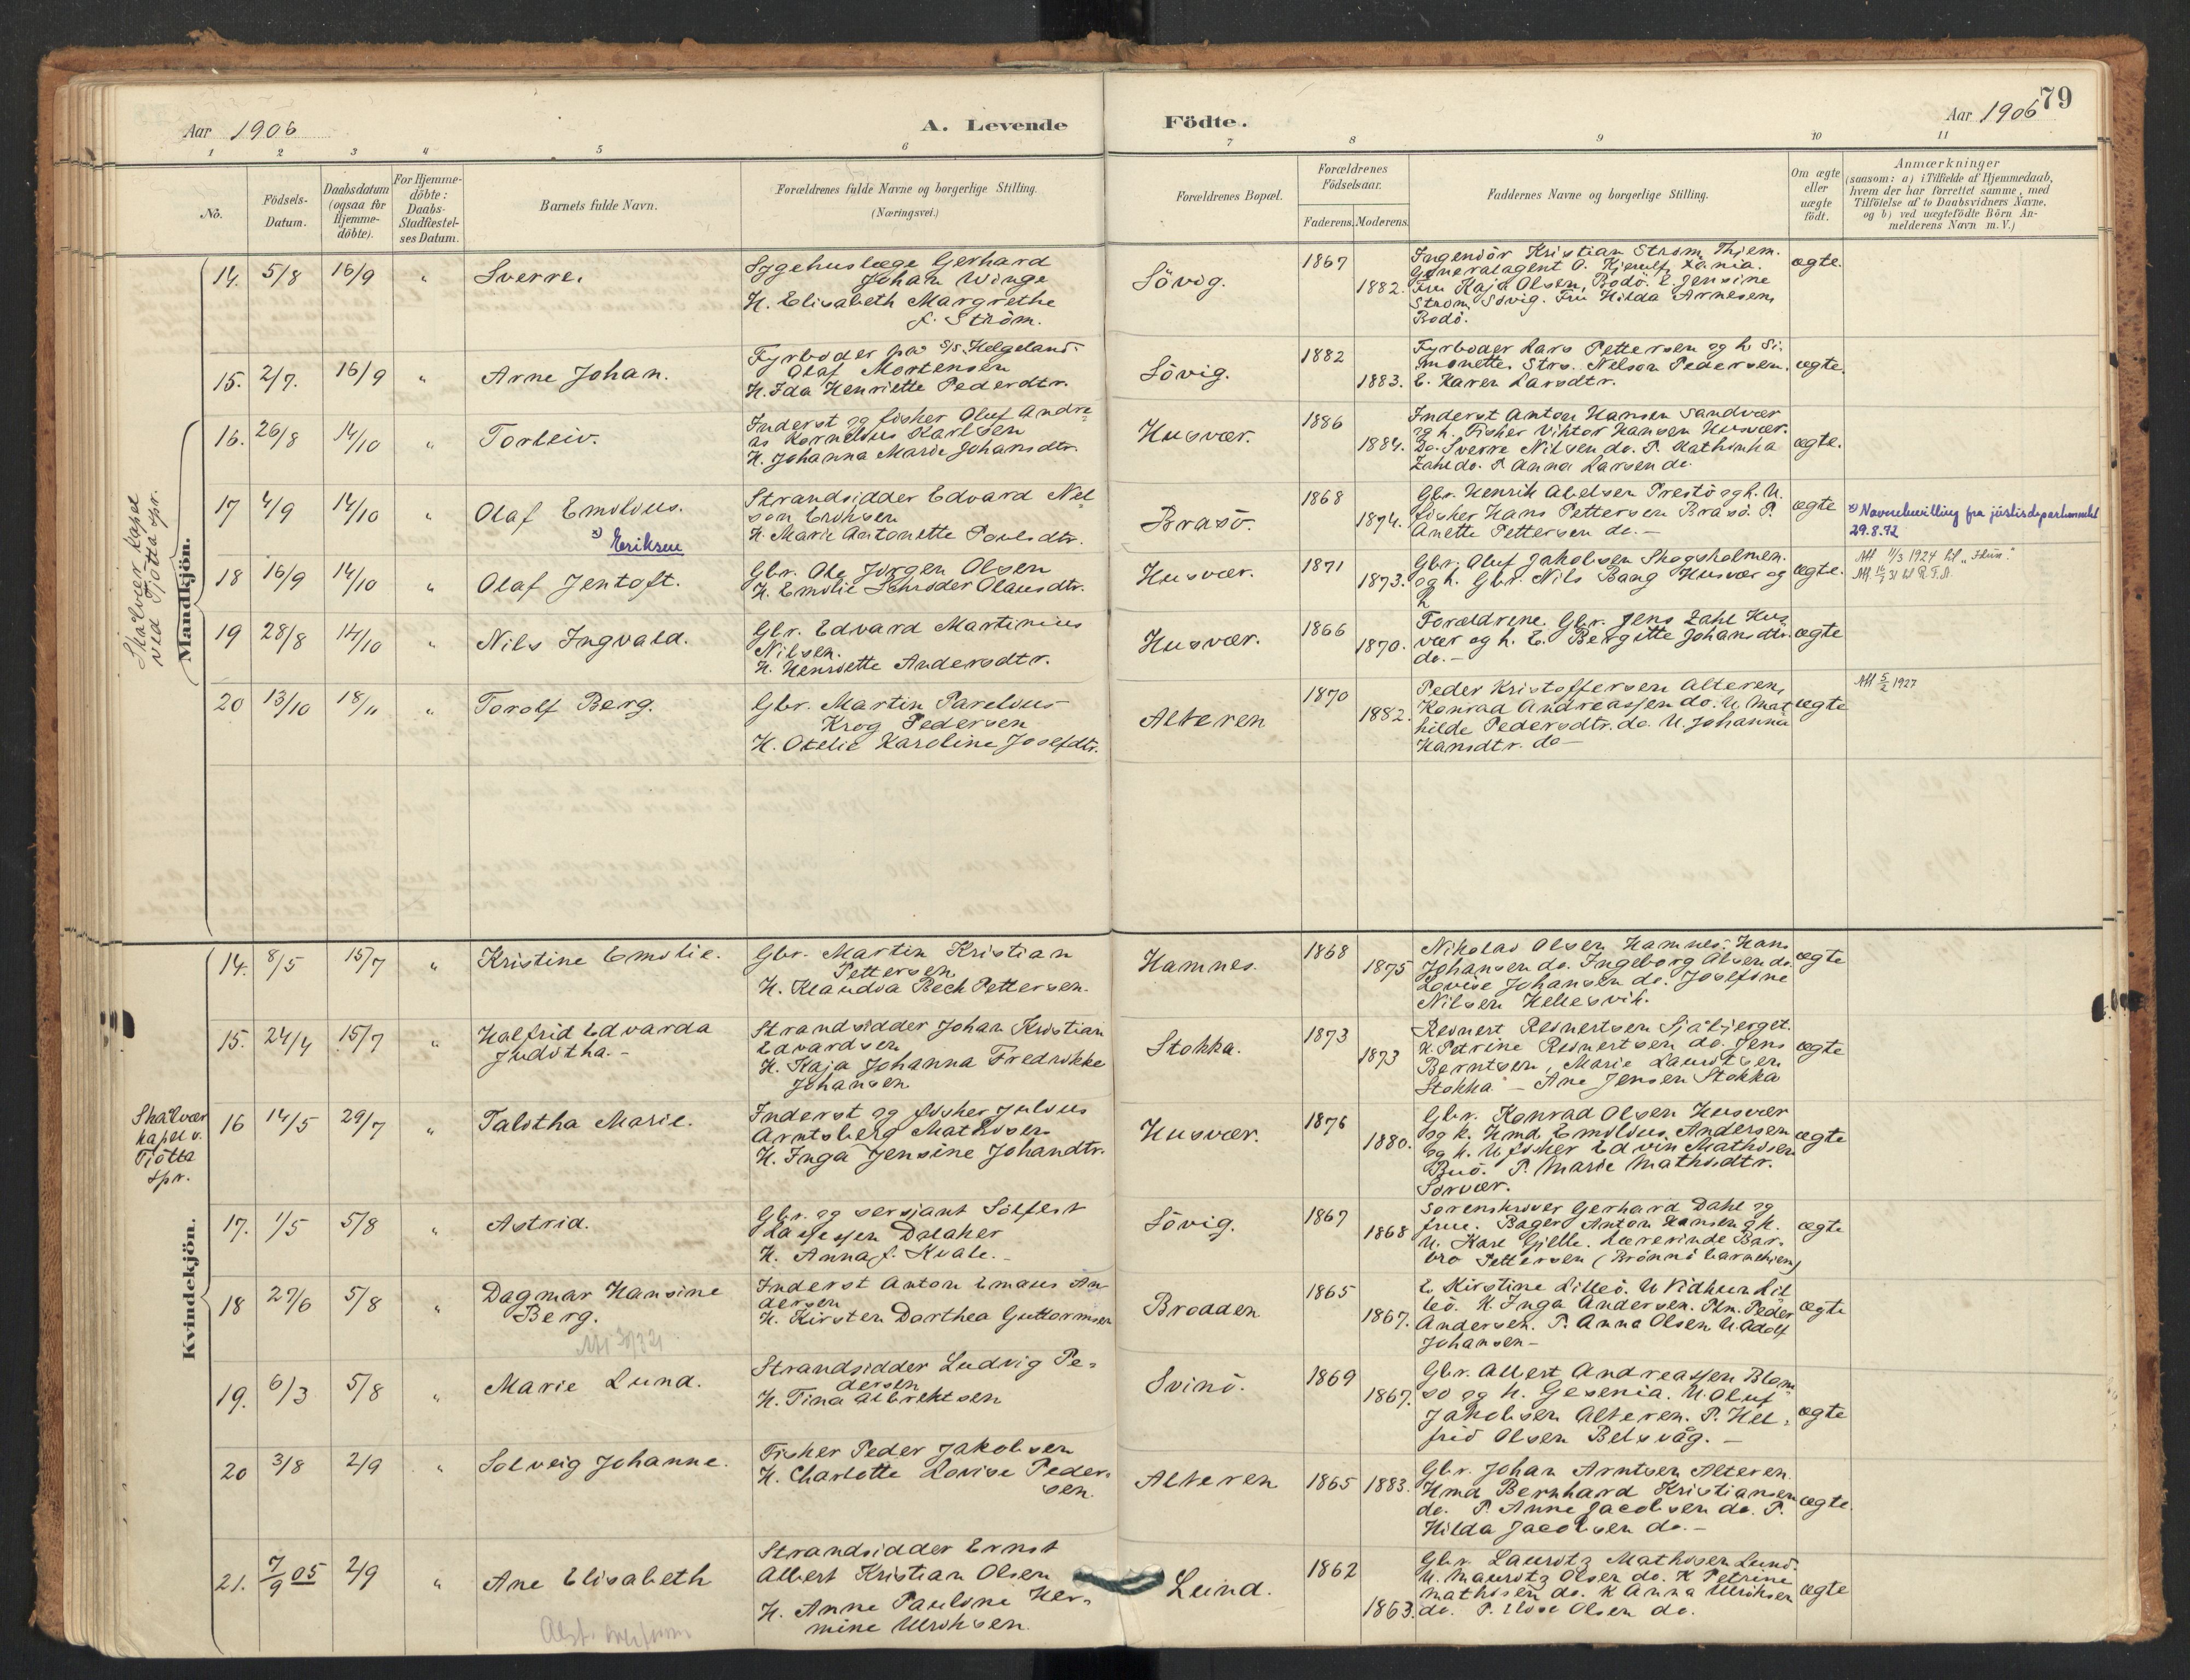 79
Aar 1906
A. Levende
Födte.
Aar 1906
1
2
3
4
5
6
7
8
9
10
11
No.
Födsels-
Datum.
Daabsdatum
(ogsaa for
Hjemme-
döbte).
For Hjemme-
döbte:
Daabs-
Stadfæstel-
ses Datum.
Barnets fulde Navn.
Forældrenes fulde Navne og borgerlige Stilling.
(Næringsvei.)
Forældrenes Bopæl.
Forældrenes
Födselsaar.
Faderens.
Moderens.
Faddernes Navne og borgerlige Stilling.
Om ægte
eller
uægte
födt.
Anmærkninger
(saasom: a) i Tilfælde af Hjemmedaab,
hvem der har forrettet samme, med
Tilföielse af to Daabsvidners Navne,
og b) ved uægtefödte Börn An-
melderens Navn m. V.)
Mandkjön.
Skålvær kapel
ved Tjötta spr.
14. 5/8 16/9 "
Sverre.
Sygehuslæge Gerhard
Johan Winge
H. Elisabeth Margrethe
f. Ström.
Sövig.
1867
1882.
Ingeniör Kristian Ström, Thjem.
Generalagent O. Hjerulf, Xania.
Fru Kaja Olsen, Bodö. E. Jensine
Ström Sövig. Fru Hilda Arnesen,
Bodö.
ægte.
15. 2/7. 16/9 "
Arne Johan.
Fyrböder på S/S Helgeland
Olaf Mortensen
H. Ida Henriette Pedersdtr.
Sövig.
1882
1883.
Fyrböder Lars Pettersen og h. Si-
monette. Strs. Nelson Pedersen.
E. Karen Larsdtr.
ægte.
16. 26/8 14/10 "
Torleiv.
Inderst og fisker Oluf Andre
as Kornelius Karlsen
H. Johanna Marie Johansdtr.
Husvær.
1886
1884.
Inderst Anton Hansen Sandvær
og h. Fisker Viktor Hansen Husvær.
Do. Sverre Nilsen do. P. Kathinka
Zahl do. P. Anna Larsen do.
ægte.
17 4/9 14/10 "
Olaf Emilius.
x) Eriksen
Strandsidder Edvard Nel
son Eriksen
H. Marie Antonette Poulsdtr.
Brasö.
1868
1874.
Gbr. Henrik Abelsen Prestö og h. U.
fisker Hans Pettersen Brasö. P.
Anette Pettersen do. -
ægte
x) Navnebevilling fra justisdepartementet
29.8.72
18 16/9 14/10 "
Olaf Jentoft.
Gbr. Ole Jörgen Olsen
H. Emilie Schröder Olausdtr.
Husvær.
1871
1873.
Gbr. Oluf Jakobsen Skogsholmen.
og h. Gbr. Nils Bang Husvær og
h.
ægte.
19 28/8 14/10 "
Nils Ingvald.
Gbr. Edvard Martinius
Nilsen.
H. Henriette Andersdtr.
Husvær.
1866
1870.
Forældrene. Gbr. Jens Zahl Hus
vær og h. E. Bergitte Johansdtr.
do. -
ægte
20 13/10 18/11 "
Torolf Berg.
Gbr. Martin Parelius
Krog Pedersen
H. Otelie Karoline Josefdtr.
Alteren
1870
1882.
Peder Kristoffersen Alteren,
Konrad Andreassen do. U. Mat
hilde Pedersdtr. do. U. Johanna
Hansdtr. do -
ægte
Att 5/2 1927
Kvindekjön.
14. 8/5 15/7 "
Kristine Emilie.
Gbr. Martin Kristian
Pettersen
H. Klaudia Bech Pettersen.
Hamnes.
1868
1875
Nikolai Olsen Hamnes. Hans
Johansen do. Ingeborg Olsen do.
Lovise Johansen do. Josefine
Nilsen Hellesvik.
ægte
15. 24/4 15/7 "
Halfrid Edvarda
Juditha. -
Strandsidder Johan Kristian
Edvardsen
H. Kaja Johanna Fredrikke
Johansen
Stokka.
1873
1873
Reinert Reinertsen Sjåbjerget.
K. Petrine Reinertsen do. Jens
Berntsen, Marie Lauritsen
Stokka - Ane Jensen Stokka
ægte
Skålvær
kapel v.
Tjötta
spr.
16 14/5 29/7 "
Talitha Marie.
Inderst og fisker Julius
Arntsberg Mathisen
H. Inga Jensine Johandtr.
Husvær.
1876
1880.
Gbr. Konrad Olsen Husvær
og h. Hmd. Emilius Andersen
og h. U. fisker Edvin Mathisen
Buö. P. Marie Mathisdtr.
Sörvær.
ægte
17. 1/5 5/8 "
Astrid.
Gbr. og sersjant Sölfest
Lassessen Dalaker
H. Anna f. Kvale. -
Sövig.
1867
1868
Sorenskriver Gerhard Dahl og
frue. Bager Anton Hansen og h.
U. Karl Gjelle. Lærerinde Bar-
bro Pettersen (Brönnö barnehjem)
ægte
18 27/6 5/8 "
Dagmar Hansine
Berg.
Inderst Anton Emaus An
dersen
H. Kirsten Dorthea Guttormsen
Brodden
1865
1867.
E. Kirstine Lilleö. U. Vidkun Lil
leö. K. Inga Andersen. Pm. Peder
Andersen. P. Anna Olsen U. Adolf
Johansen -
ægte
19. 6/3 5/8 "
Marie Lund.
Strandsidder Ludvig Pe-
dersen
H. Tina Albrektsen
Svinö.
1869
1867.
Gbr. Albert Andreassen Blom
sö og h. Gesenia. U. Oluf
Jakobsen Alteren. P. Hel-
frid Olsen Belsvåg. -
ægte
20 3/8 2/9 "
Solveig Johanne.
Fisker Peder Jakobsen
H. Charlotte Lovise Peder-
sen.
Alteren
1865
1883.
Gbr. Johan Arntsen Alteren.
Hmd Bernhard Kristiansen
do. P. Anne Jacobsen do. P.
Hilda Jacobsen do. -
ægte.
21. 7/9 05 2/9 "
Ane Elisabeth
Strandsidder Ernst
Albert Kristian Olsen
H. Anne Pauline Her-
mine Ulriksen.
Lund.
1862
1863.
Gbr. Lauritz Mathisen Lund.
U. Mauritz Olsen do. K. Petrine
Mathisen do. K. Anna Ulriksen
do. P. Olsen do.
ægte